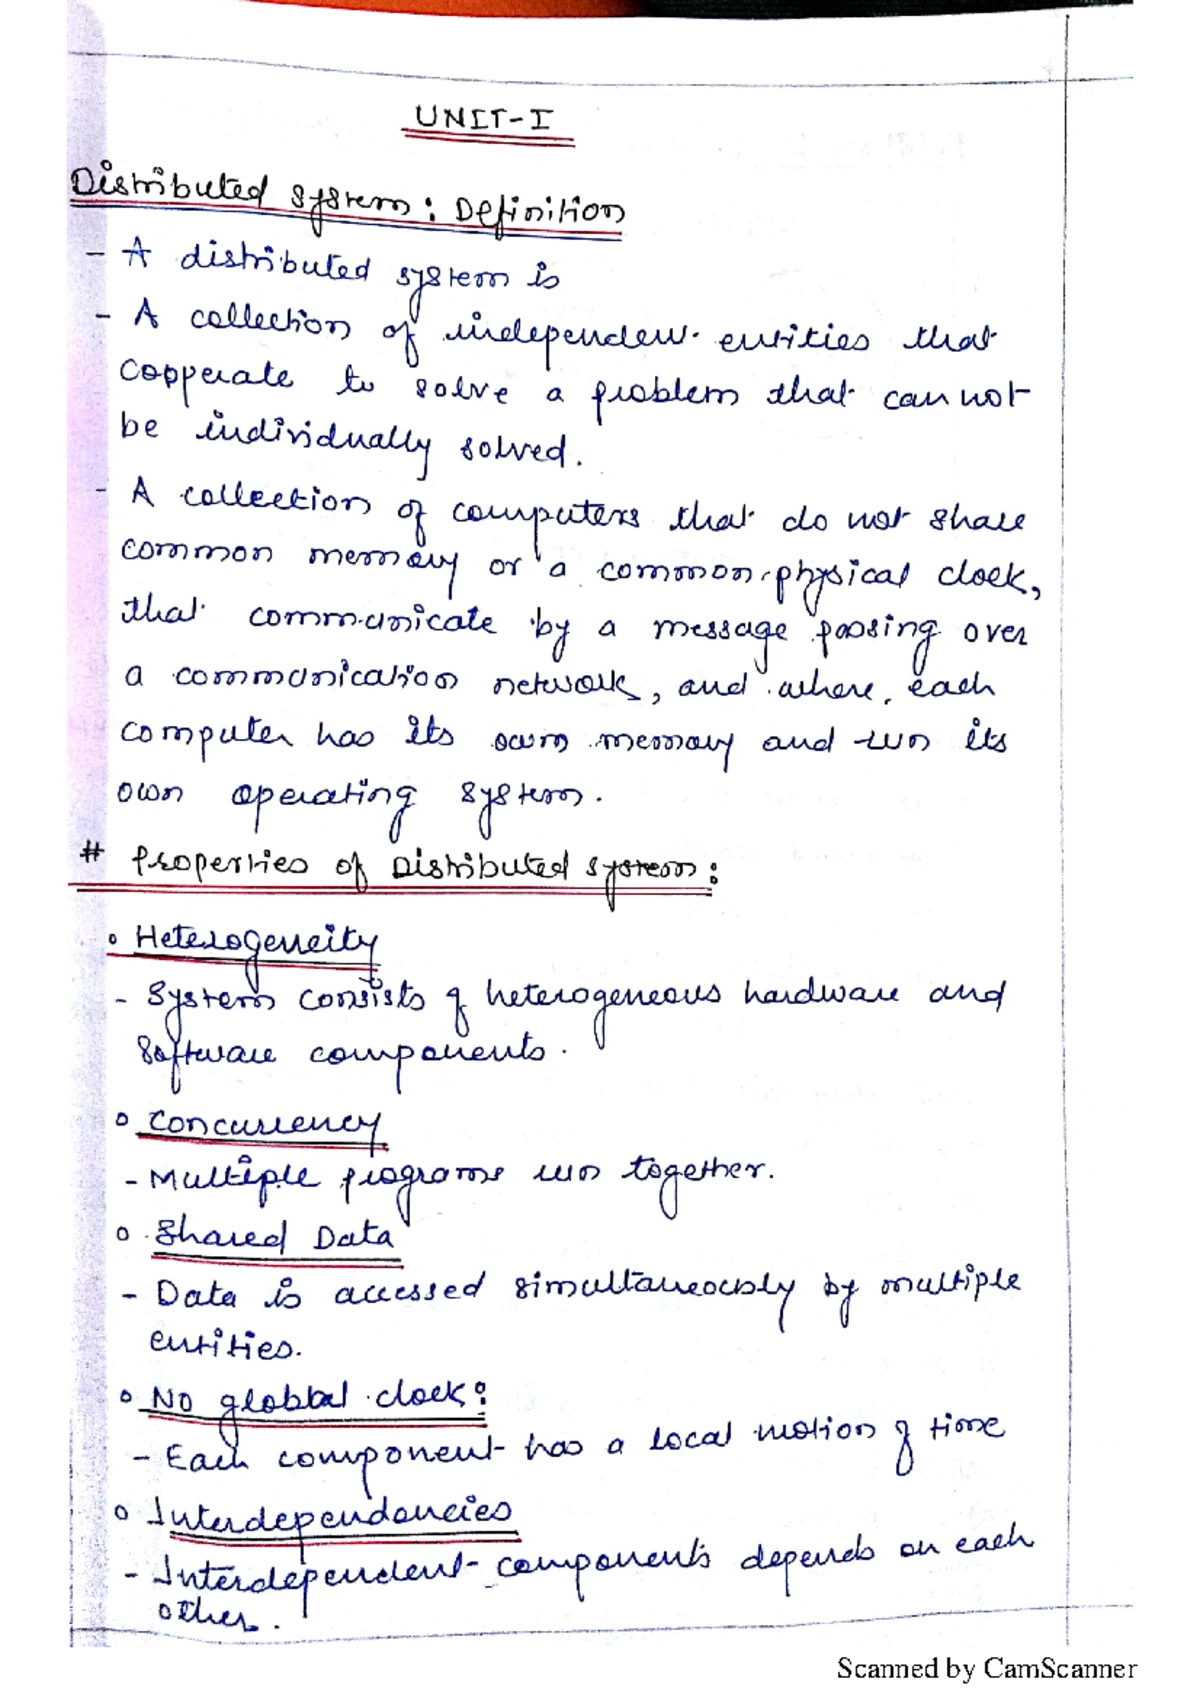 UNIT-I
Distributed system: Definition
- A distributed system is
- A collection of independent entities that
copperate to solve a problem that can not
be individually solved.
- A collection of computers that do not share
common memory or a common physical clock,
that communicate by a message passing over
a communication network, and where each
computer has its own memory and run its
own operating system.
# Properties of Distributed system:
o Heterogeneity
- System consists of heterogeneous hardware and
Software components.
o Concurrency
- Multiple programs run together.
o Shared Data
- Data is accessed simultaneously by multiple
entities.
o No globbal clock:
- Each component has a local motion of time
o Interdependencies
- Interdependent components depends on each
other.
Scanned by CamScanner